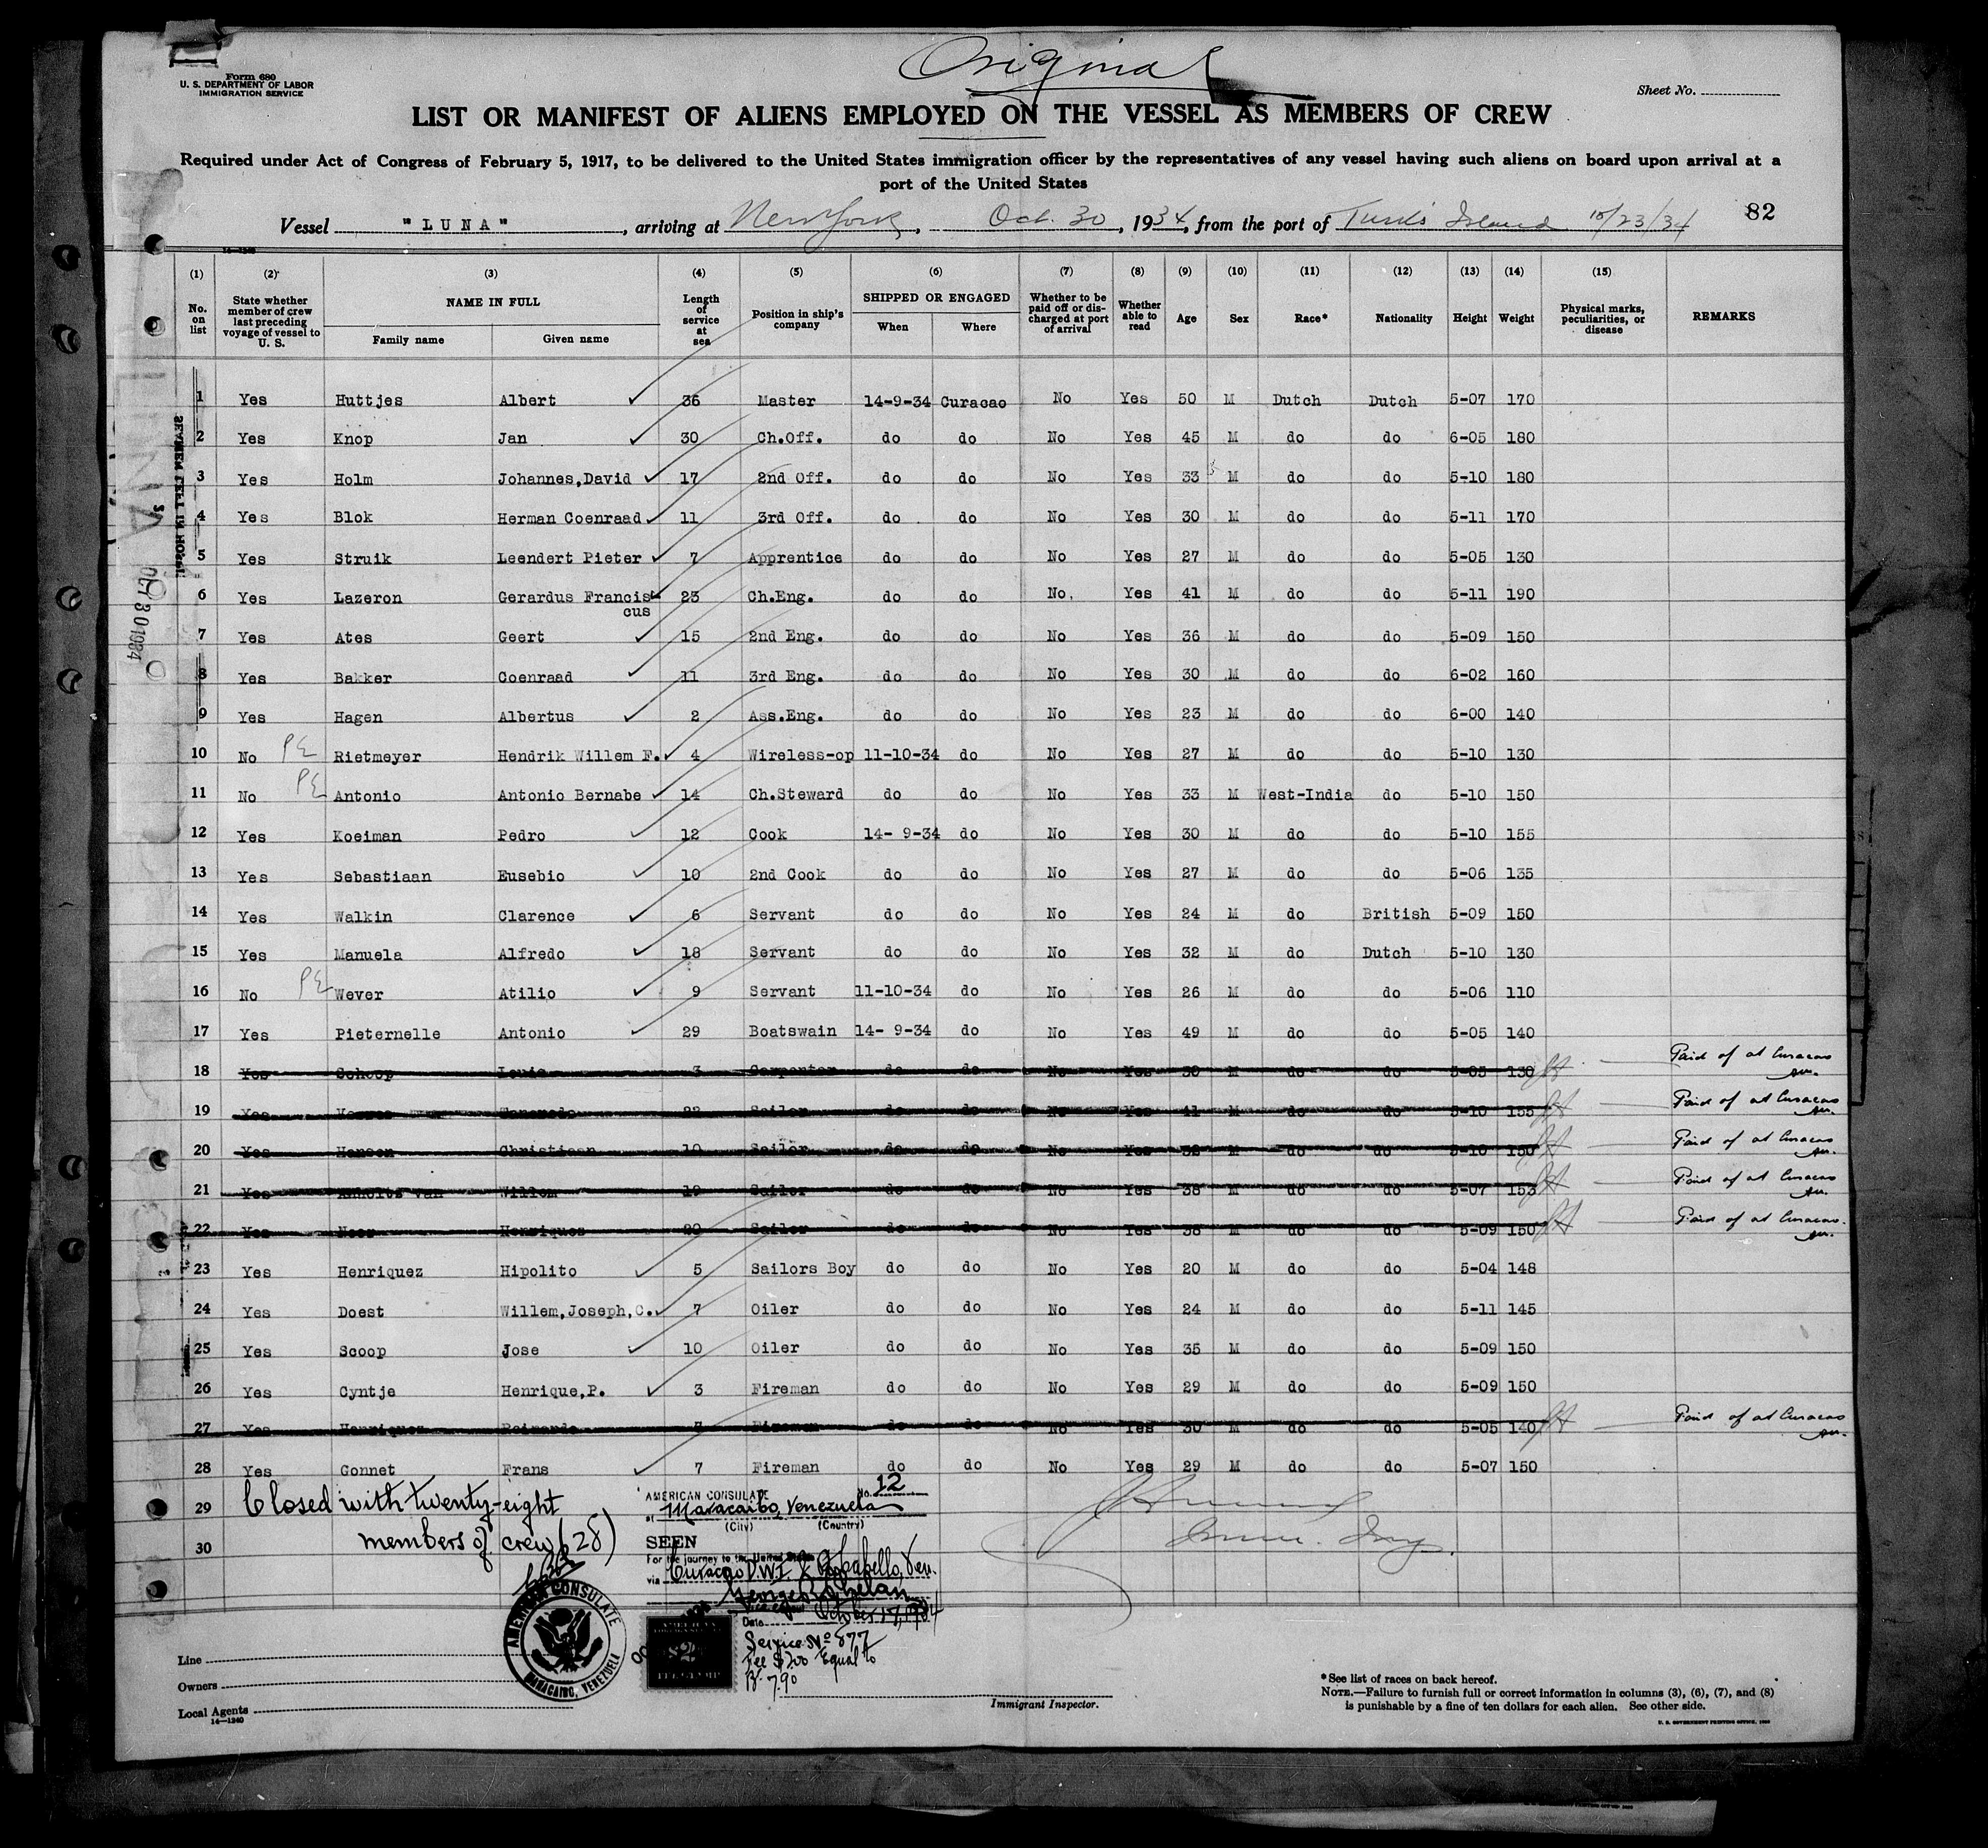 Original
Form 680
U. S. DEPARTMENT OF LABOR
IMMIGRATION SERVICE
Sheet No.
LIST OR MANIFEST OF ALIENS EMPLOYED ON THE VESSEL AS MEMBERS OF CREW
Required under Act of Congress of February 5, 1917, to be delivered to the United States immigration officer by the representatives of any vessel having such aliens on board upon arrival at a
port of the United States
Vessel "LUNA", arriving at New York, Oct. 30, 1934, from the port of Turk's Island 10/23/34 82
14—1240
(1) (2) (3) (4) (5) (6) (7) (8) (9) (10) (11) (12) (13) (14) (15)
No. on list
State whether member of crew last preceding voyage of vessel to U. S.
NAME IN FULL
Family name Given name
Length of service at sea
Position in ship's company
SHIPPED OR ENGAGED
When Where
Whether to be paid off or discharged at port of arrival
Whether able to read
Age Sex Race* Nationality Height Weight
Physical marks, peculiarities, or disease
REMARKS
1 Yes Huttjes Albert 36 Master 14-9-34 Curacao No Yes 50 M Dutch Dutch 5-07 170
2 Yes Knop Jan 30 Ch.Off. do do No Yes 45 M do do 6-05 180
3 Yes Holm Johannes,David 17 2nd Off. do do No Yes 33 M do do 5-10 180
4 Yes Blok Herman Coenraad 11 3rd Off. do do No Yes 30 M do do 5-11 170
5 Yes Struik Leendert Pieter 7 Apprentice do do No Yes 27 M do do 5-05 130
6 Yes Lazeron Gerardus Francis 23 Ch.Eng. do do No. Yes 41 M do do 5-11 190
cus
7 Yes Ates Geert 15 2nd Eng. do do No Yes 36 M do do 5-09 150
8 Yes Bakker Coenraad 11 3rd Eng. do do No Yes 30 M do do 6-02 160
9 Yes Hagen Albertus 2 Ass.Eng. do do No Yes 23 M do do 6-00 140
10 No PE Rietmeyer Hendrik Willem F. 4 Wireless-op 11-10-34 do No Yes 27 M do do 5-10 130
11 No PE Antonio Antonio Bernabe 14 Ch.Steward do do No Yes 33 M West-India do 5-10 150
12 Yes Koeiman Pedro 12 Cook 14- 9-34 do No Yes 30 M do do 5-10 155
13 Yes Sebastiaan Eusebio 10 2nd Cook do do No Yes 27 M do do 5-06 135
14 Yes Walkin Clarence 6 Servant do do No Yes 24 M do British 5-09 150
15 Yes Manuela Alfredo 18 Servant do do No Yes 32 M do Dutch 5-10 130
16 No PE Wever Atilio 9 Servant 11-10-34 do No Yes 26 M do do 5-06 110
17 Yes Pieternelle Antonio 29 Boatswain 14- 9-34 do No Yes 49 M do do 5-05 140
18 Yes Schoop Louis 3 Carpenter do do No Yes 30 M do do 5-05 130 Paid of at Curacao
19 Yes Sailor do do No Yes 41 M do do 5-10 155 Paid of at Curacao
20 Yes Hansen Christiaan 10 Sailor do do No Yes 32 M do do 5-10 150 Paid of at Curacao
21 Yes van Willem 19 Sailor do do No Yes 38 M do do 5-07 153 Paid of at Curacao
22 Yes Henriques 20 Sailor do do No Yes 38 M do do 5-09 150 Paid of at Curacao.
23 Yes Henriquez Hipolito 5 Sailors Boy do do No Yes 20 M do do 5-04 148
24 Yes Doest Willem,Joseph,C. 7 Oiler do do No Yes 24 M do do 5-11 145
25 Yes Scoop Jose 10 Oiler do do No Yes 35 M do do 5-09 150
26 Yes Cyntje Henrique,P. 3 Fireman do do No Yes 29 M do do 5-09 150
27 Yes Henriquez Reimundo Fireman do do No Yes 30 M do do 5-05 140 Paid of at Curacao
28 Yes Gonnet Frans 7 Fireman do do No Yes 29 M do do 5-07 150
29 Closed with twenty-eight
30 members of crew (28)
AMERICAN CONSULATE No. 12
at Maracaibo, Venezuela
(City) (Country)
SEEN
For the journey to the United States
via Curacao D.W.I. & Pto Cabello, Ven.
Date October 17, 1934
Service No 577
Fee $2.00 Equal to
B. 7.90
AMERICAN CONSULATE
MARACAIBO, VENEZUELA
Line
Owners
Local Agents
14—1240
Immigrant Inspector.
*See list of races on back hereof.
NOTE.—Failure to furnish full or correct information in columns (3), (6), (7), and (8)
is punishable by a fine of ten dollars for each alien. See other side.
LUNA
OCT 30 1934